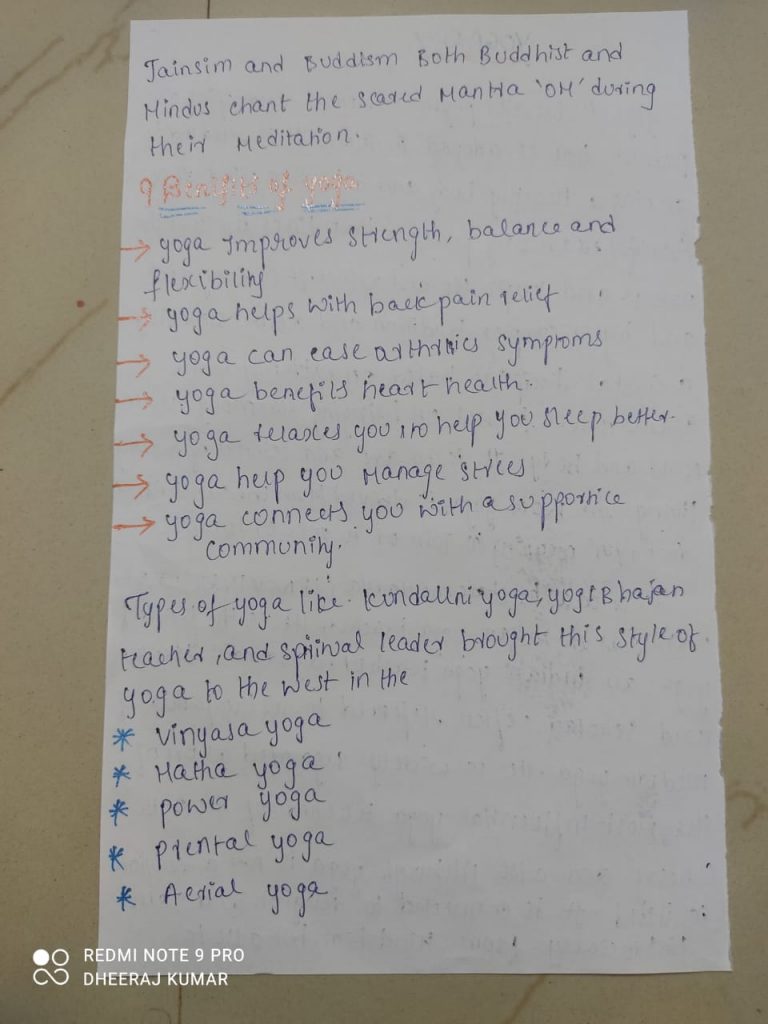 Jainsim and Buddism Both Buddhist and
Hindus chant the scared Mantra 'OM' during
their Meditation.
9 Benifits of yoga
→ yoga Improves strength, balance and
flexibility
→ yoga helps with back pain relief
→ yoga can ease arthritics symptoms
→ yoga benefits heart health.
→ yoga relaxes you to help you sleep better.
→ yoga help you Manage strees
→ yoga connects you with a supportice
community.
Types of yoga like Kundallni yoga, yogi Bhajan
teacher, and spiritual leader brought this style of
yoga to the west in the
* Vinyasa yoga
* Hatha yoga
* power yoga
* prental yoga
* Aerial yoga
REDMI NOTE 9 PRO
DHEERAJ KUMAR